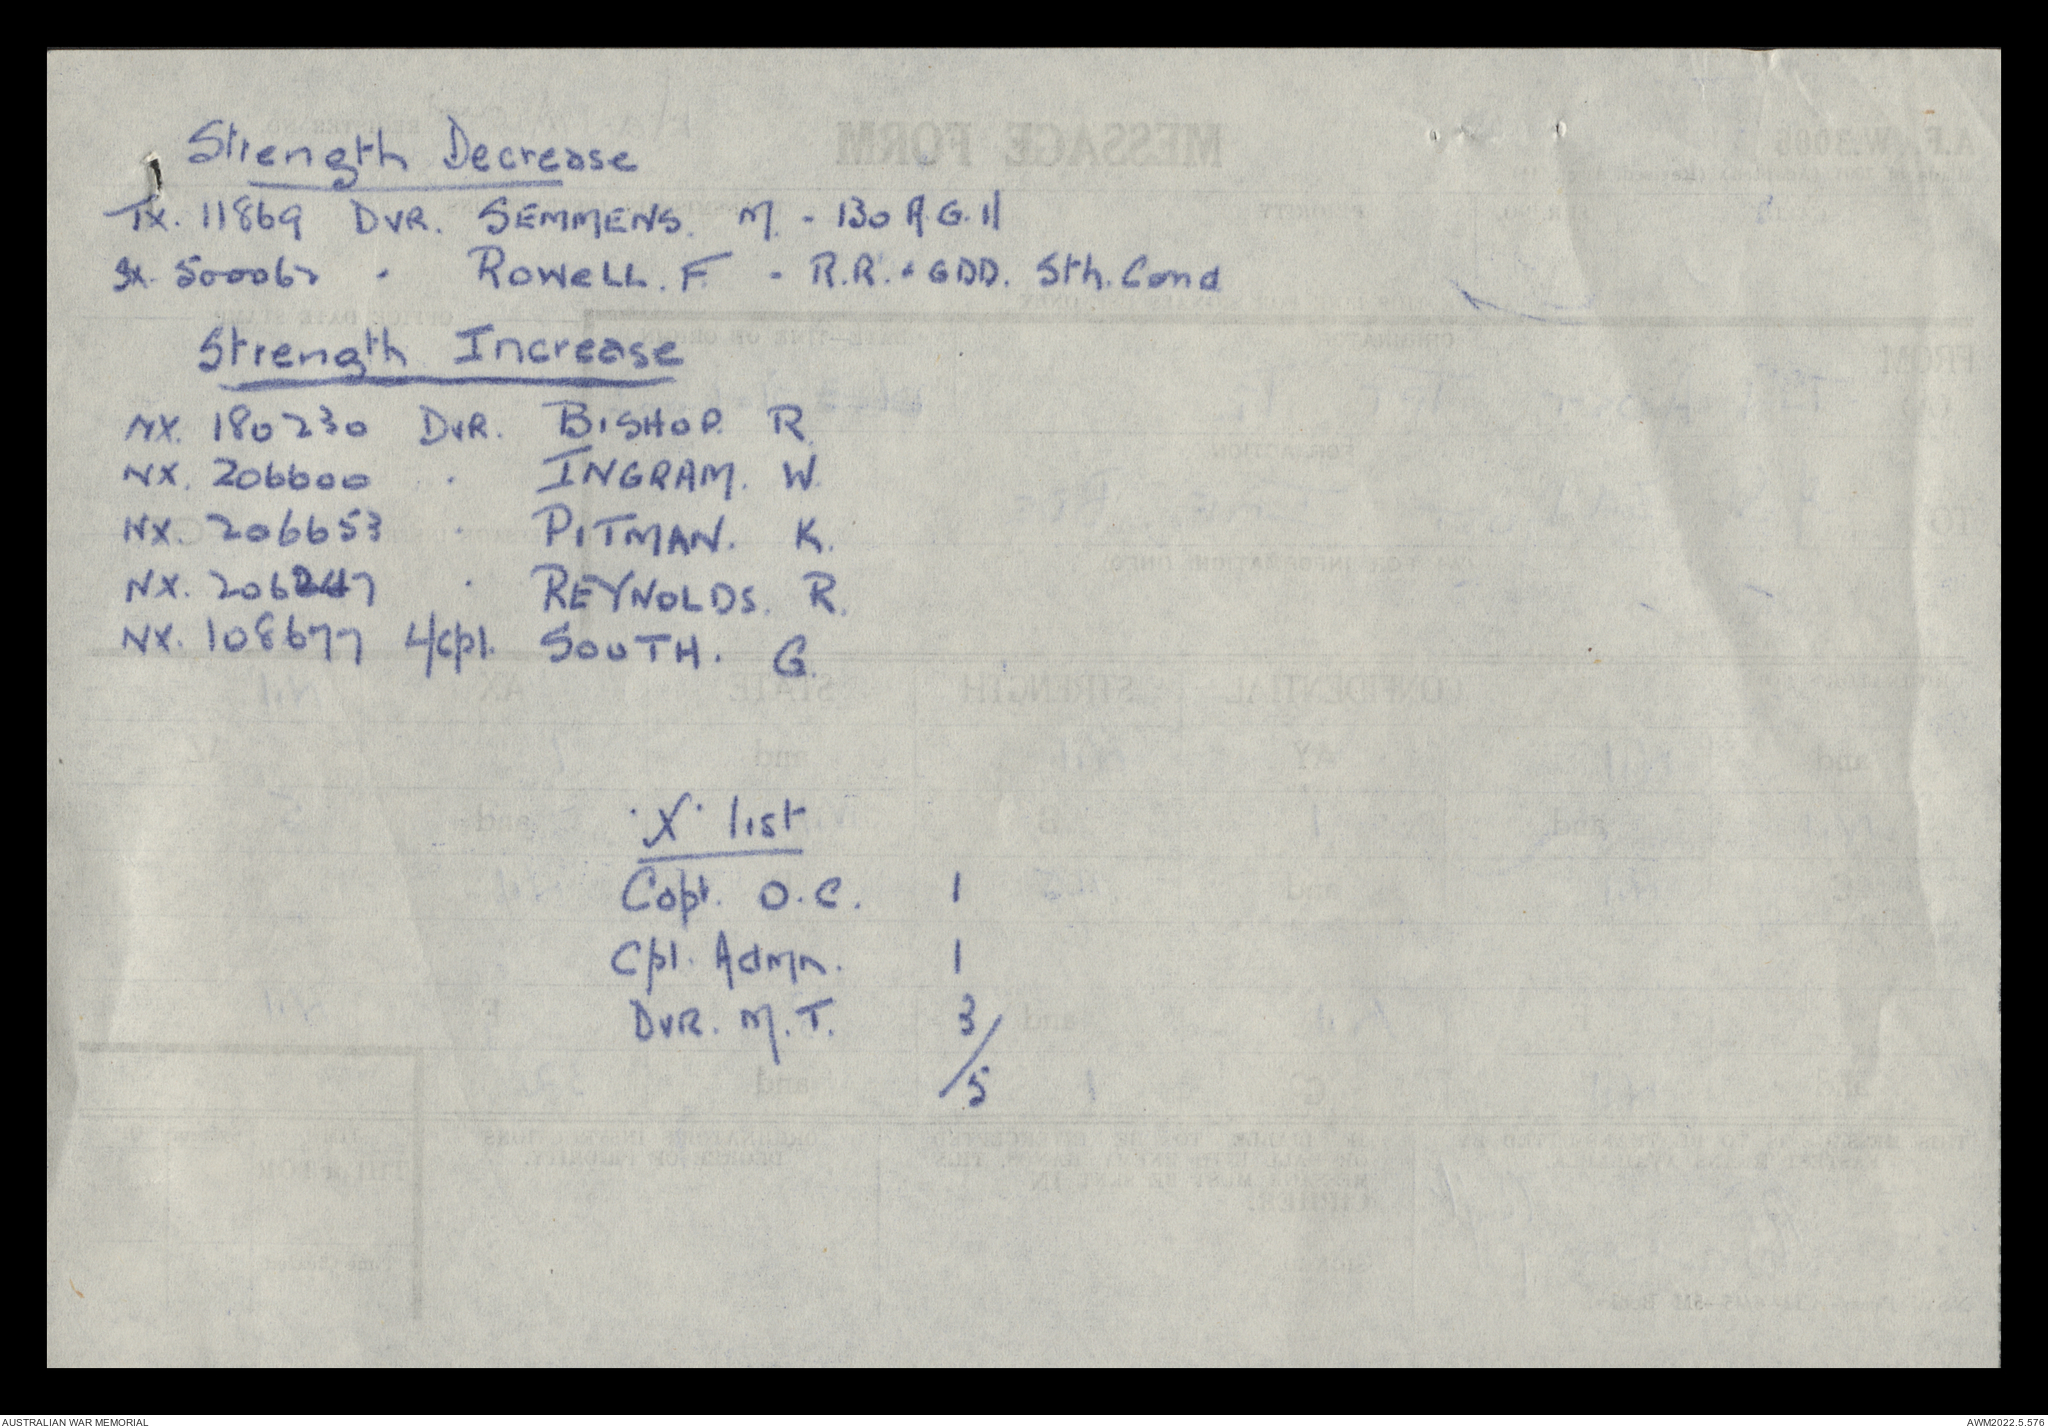 Strength Decrease
TX. 11869 DVR. SEMMENS. M. - 130 A.G.H
SX. 500062 " ROWELL. F. - R.R. & GDD. Sth. Comd
Strength Increase
NX. 180230 DVR. BISHOP. R.
NX. 206600 " INGRAM. W.
NX. 206653 " PITMAN. K.
NX. 206247 " REYNOLDS. R.
NX. 108677 L/Cpl. SOUTH. G.
"X" list
Capt. O.C. 1
Cpl. Admn. 1
DVR. M.T. 3
/5
AUSTRALIAN WAR MEMORIAL
AWM2022.5.576